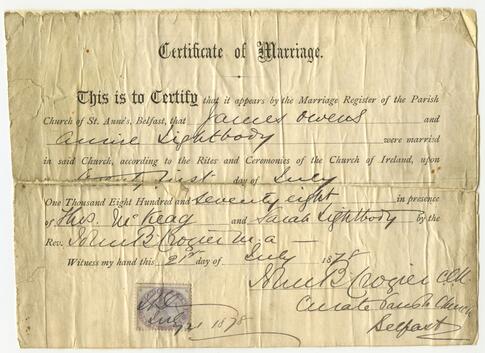 Certificate of Marriage.
This is to Certify that it appears by the Marriage Register of the Parish
Church of St. Anne's, Belfast, that James Owens and
Annie Lightbody were married
in said Church, according to the Rites and Ceremonies of the Church of Ireland, upon
Twenty first day of July
One Thousand Eight Hundred and Seventy eight in presence
of Thos. McKeag and Sarah Lightbody by the
Rev. John B Crozier M.A
Witness my hand this 21st day of July 1878
John B Crozier
Curate Parish Church
Belfast
July 21 1878